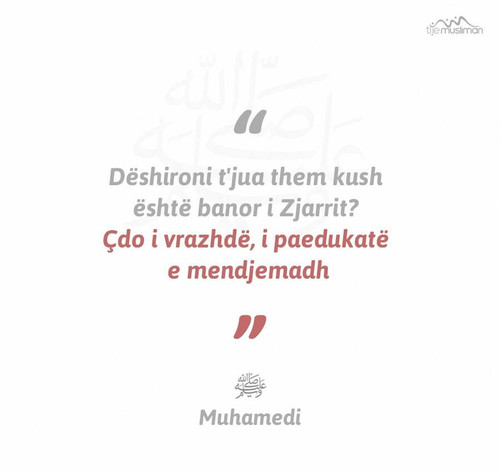 tijemusliman
“
Dëshironi t'jua them kush
është banor i Zjarrit?
Çdo i vrazhdë, i paedukatë
e mendjemadh
”
ﷺ
Muhamedi